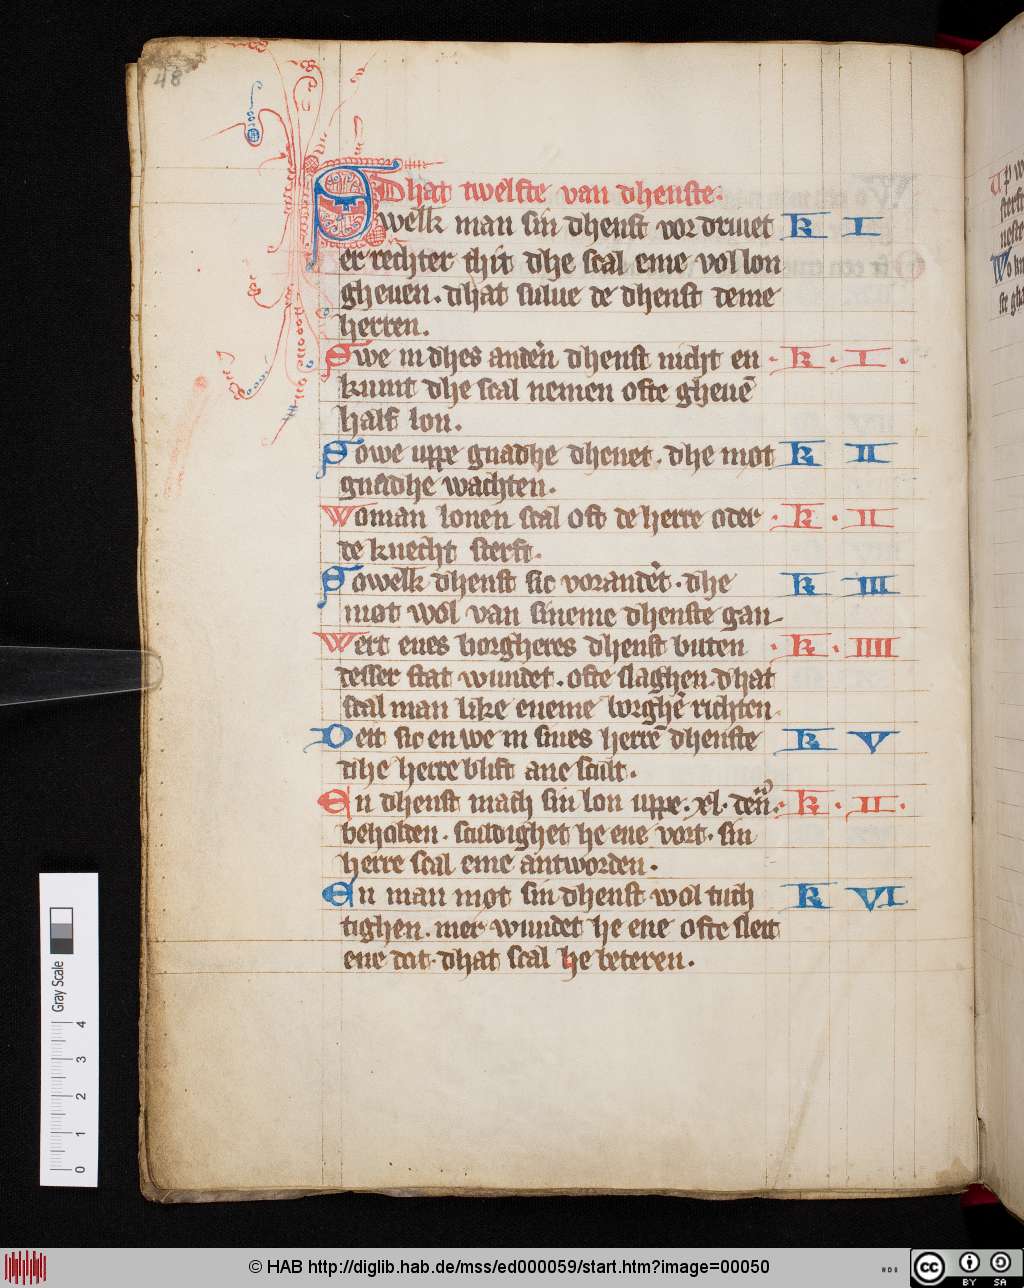 48
Dhat twelfte van dhenste.
Swelk man sin dhenst vordriuet K I
er rechter thit dhe scal eme vol lon
gheuen. dhat sulue de dhenst deme
herren.
Swe in dhes anderñ dhenst nicht en · k · I ·
kumt dhe scal nemen ofte gheuē
half lon.
Sowe uppe gnadhe dhenet. dhe mot K II
gnadhe wachten.
Woman lonen scal oft de herre oder · k · II
de knecht sterft.
Sowelk dhenst sic vorandēt. dhe K III
mot wol van sineme dhenste gan
Wert enes borgheres dhenst buten · k · IIII
desser stat wundet. ofte slaghen. dhat
scal man like eneme borghē richten
Deit sic en we in sines herrē dhenste K V
dhe herre blift ane scult.
En dhenst mach sin lon uppe. xl. deñ. · k · II ·
beholden. sculdighet he ene vort. sin
herre scal eme antworden.
En man mot sin dhenst wol tuch K VI
tighen. mer wundet he ene ofte sleit
ene dot. dhat scal he beteren.
Gray Scale
0 1 2 3 4
© HAB http://diglib.hab.de/mss/ed000059/start.htm?image=00050
HAB
cc BY SA